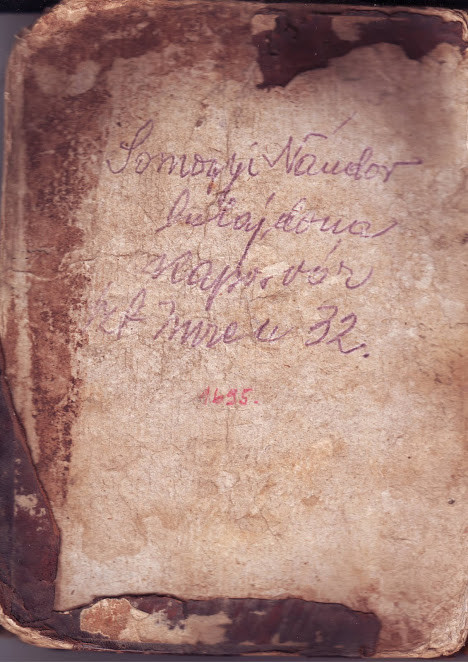 Somogyi Nándor
tulajdona
Kaposvár
Imre u 32.
1695.